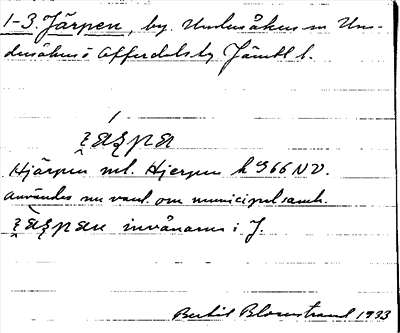 1-3. Järpen, by, Undersåkers sn Un-
dersåkers o Offerdals tg Jämtl. l.
Hjärpen ml. Hjerpen k 966 NV.
Användes nu vanl. om municipalsamh.
invånarna i J.
Bertil Blomstrand 1933